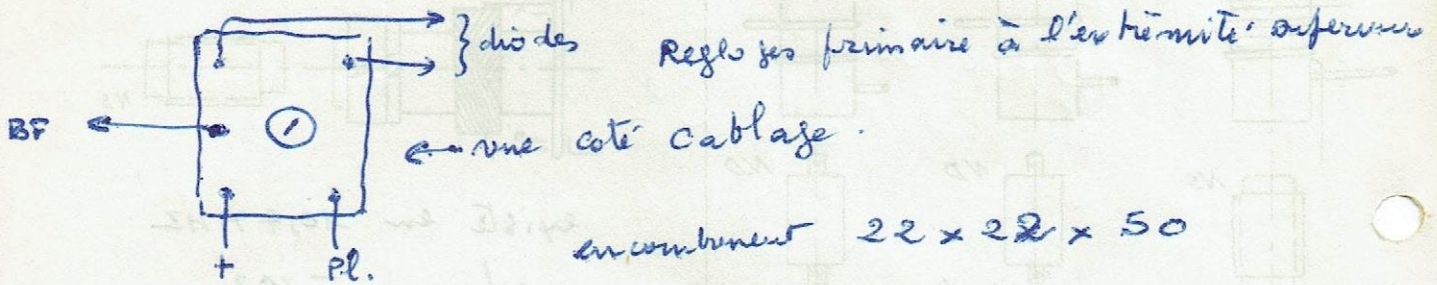 }diodes Reglages primaire à l'extrémité inferieure
BF ← vue coté cablage.
encombrement 22 x 22 x 50
+ Pl.